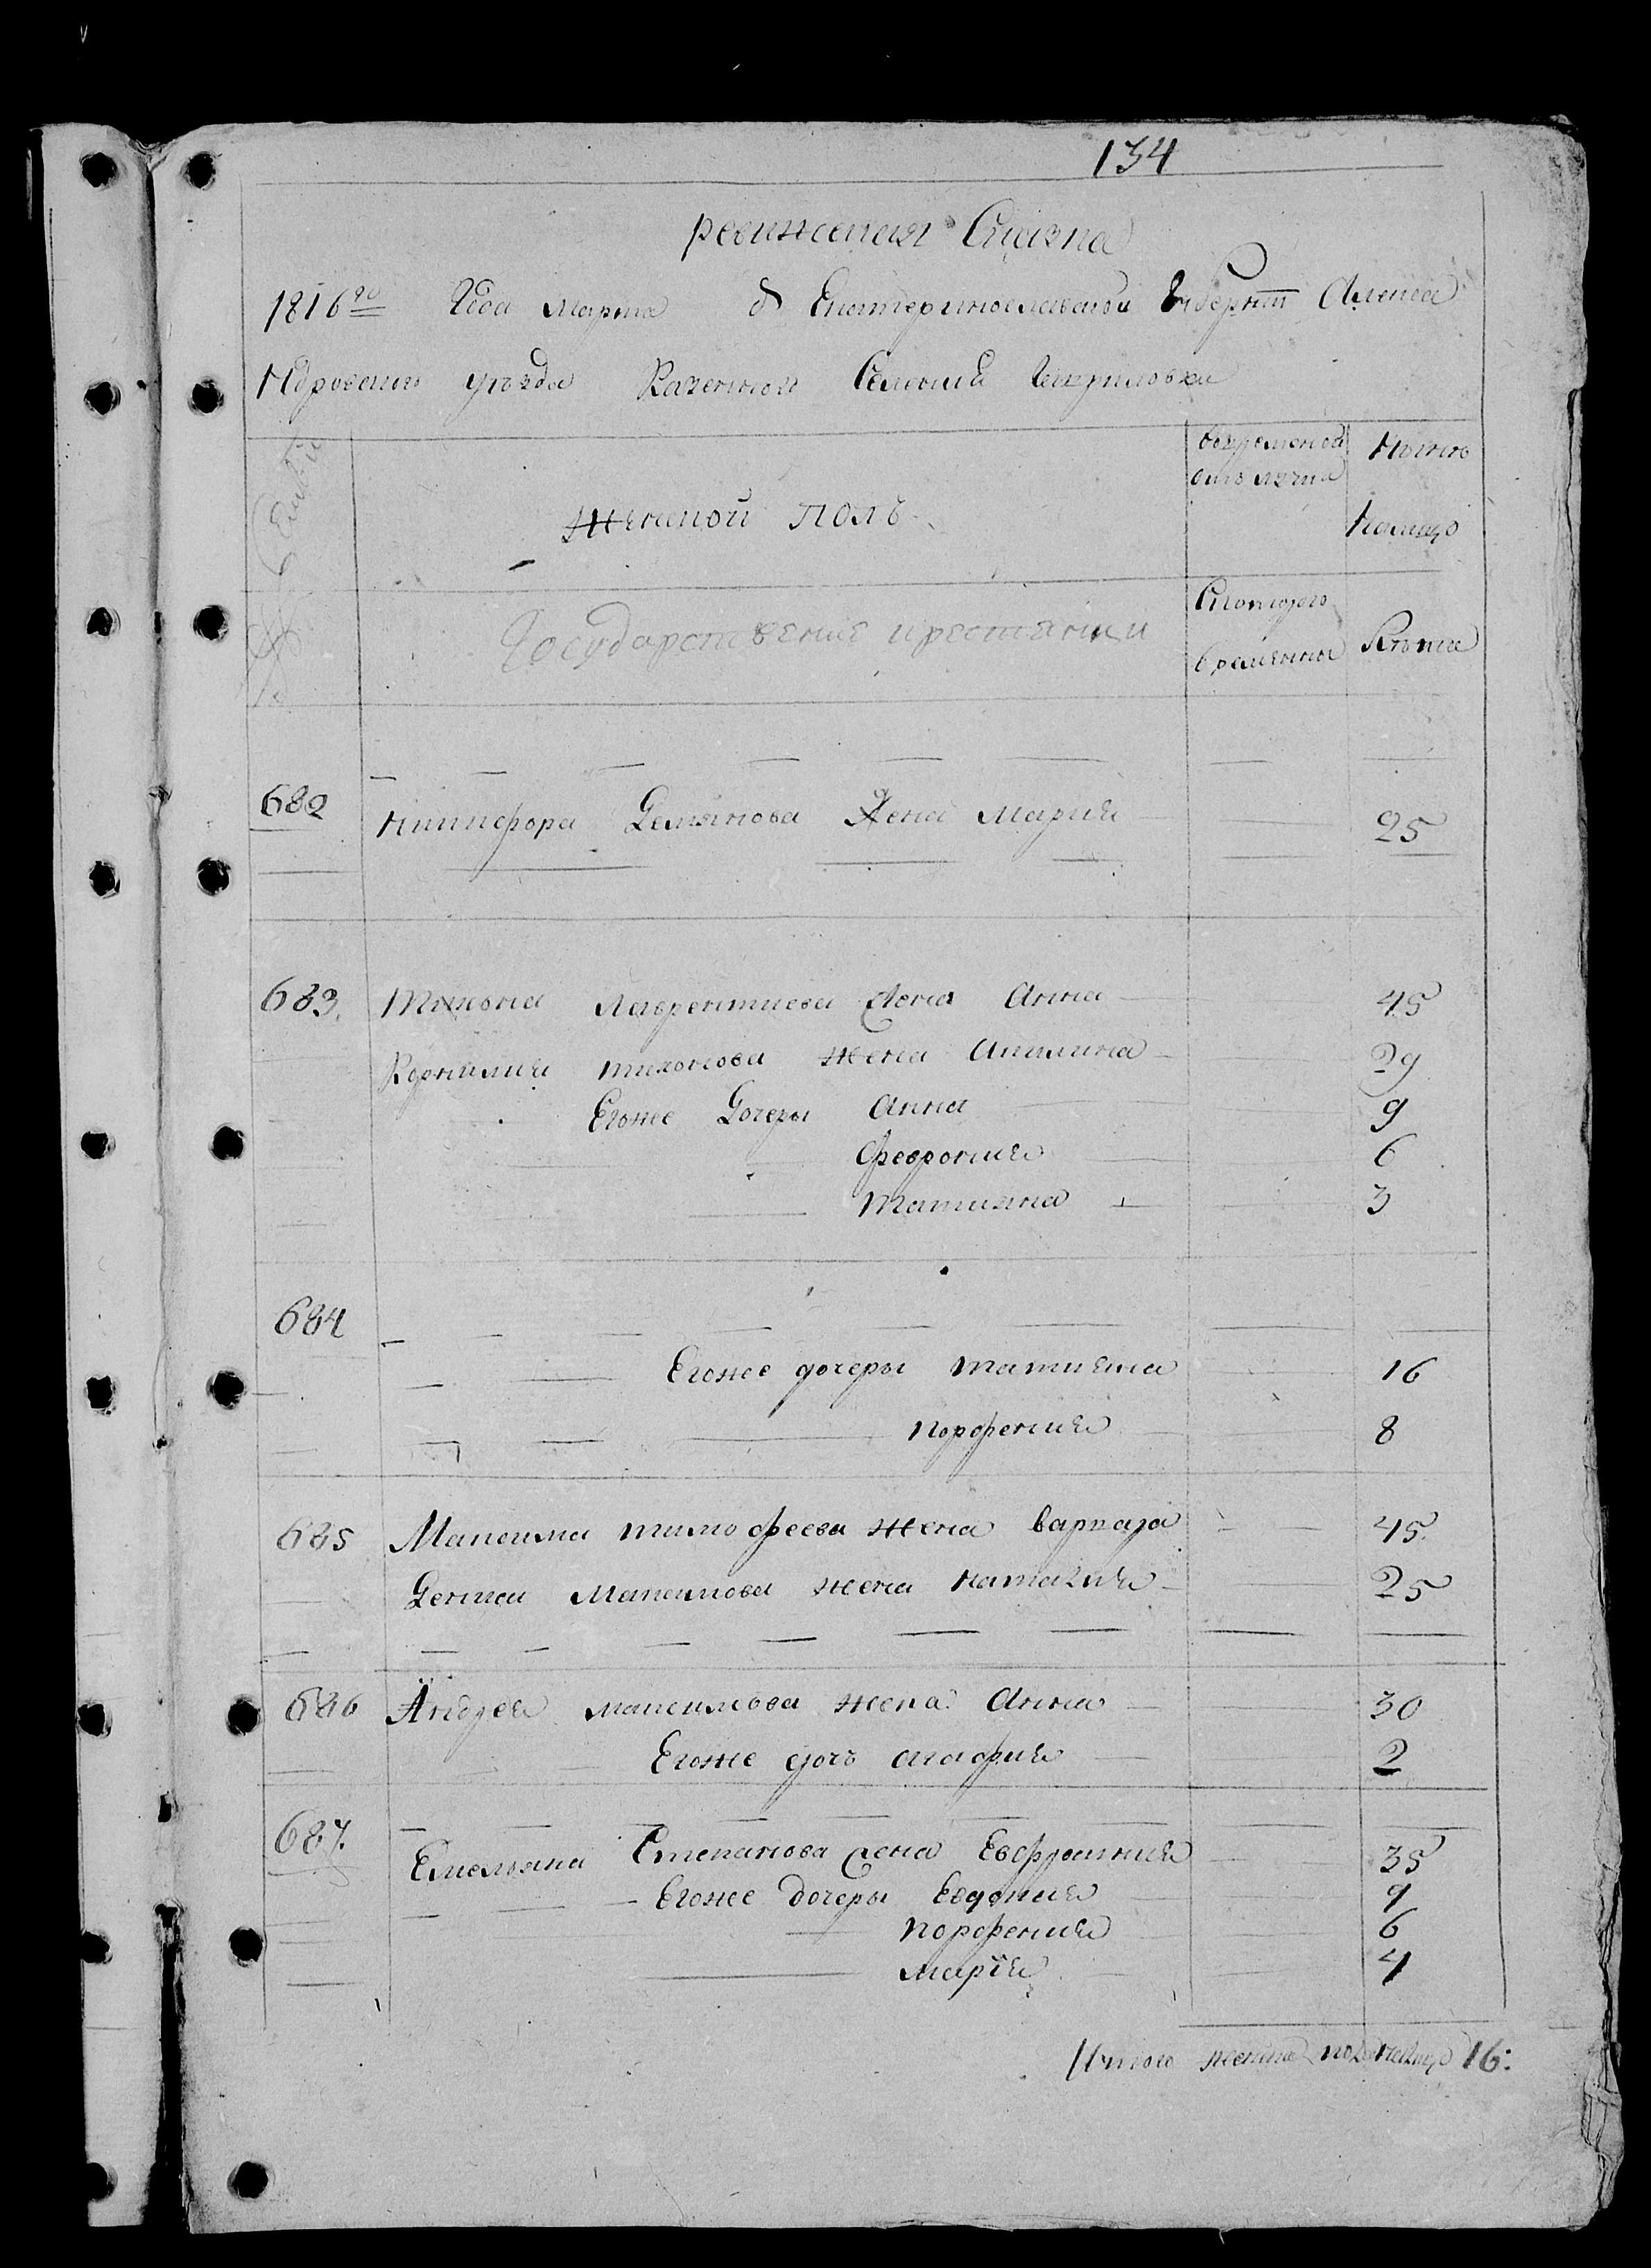 134
ревижская Сказка
1816го Года марта д Екатеринославской Губернии Алекса
Ндровского уезда Казенной Селения
Женской полъ
вовременной отлучка
Ныне
налицо
Государствение крестяни
Скоторого времянны
Лъта
682 Никифора Демянова Жена Мария 25
683. Тихона Лаврентиева Жена Анна 45
Корнилия тихонова жена Акилина 29
Егоже Дочеры Анна 9
Феврония 6
Татияна 3
684
Егоже дочеры татияна 16
порфения 8
685 Максима тимофеева жена варвара 45.
Дениса Максимова жена наталия 25
686 Андрея максимова жена Анна 30
Егоже дочь агафия 2
687. Емельяна Степанова жена Евфросиния 35
Егоже дочеры Евдокия 9
порфения 6
мария 4
Итого женска пола налицо 16: